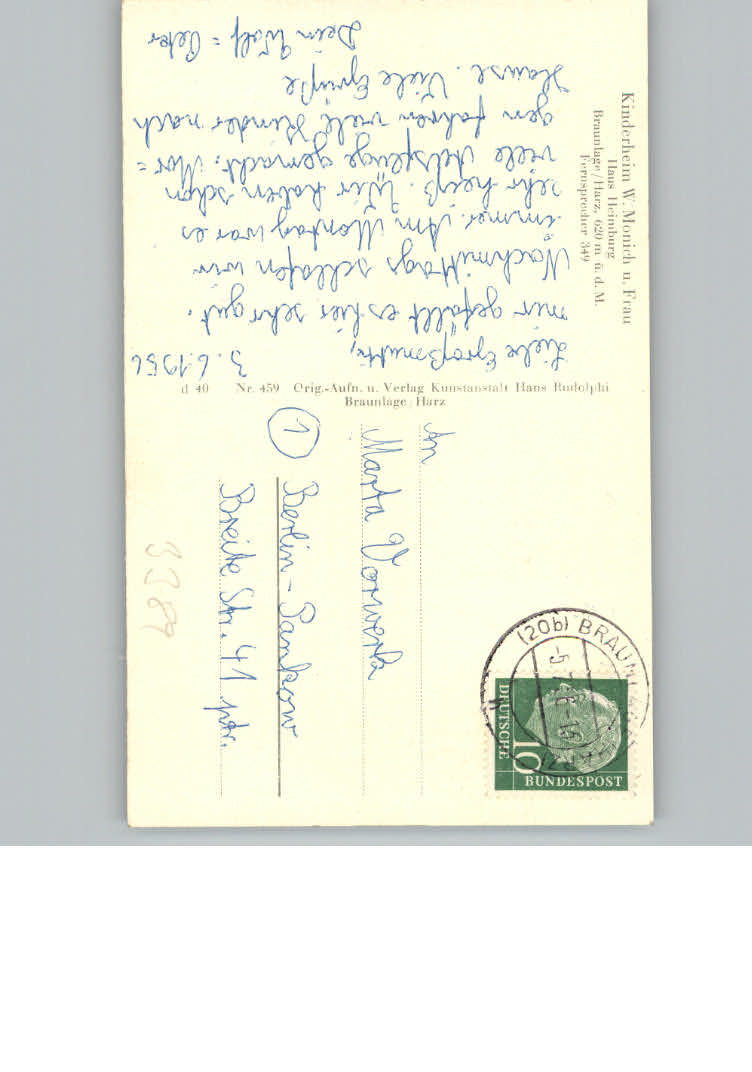 Kinderheim W. Monich u. Frau
Haus Heimburg
Braunlage/Harz, 620 m ü. d. M.
Fernsprecher 349
3.6.1956
Liebe Großmutti,
mir gefällt es hier sehr gut.
Nachmittags schlafen wir
immer. Am Montag war es
sehr heiß. Wir haben schon
viele Ausflüge gemacht. Mor=
gen fahren viele Kinder nach
Hause. Viele Grüße
Dein Wolf=Peter
d 40 Nr. 459 Orig.-Aufn. u. Verlag Kunstanstalt Hans Rudolphi
Braunlage/Harz
An
Marta Vorwerk
1 Berlin-Pankow
Breite Str. 41 ptr.
3389
(20b) BRAUNLAGE
DEUTSCHE
10
BUNDESPOST